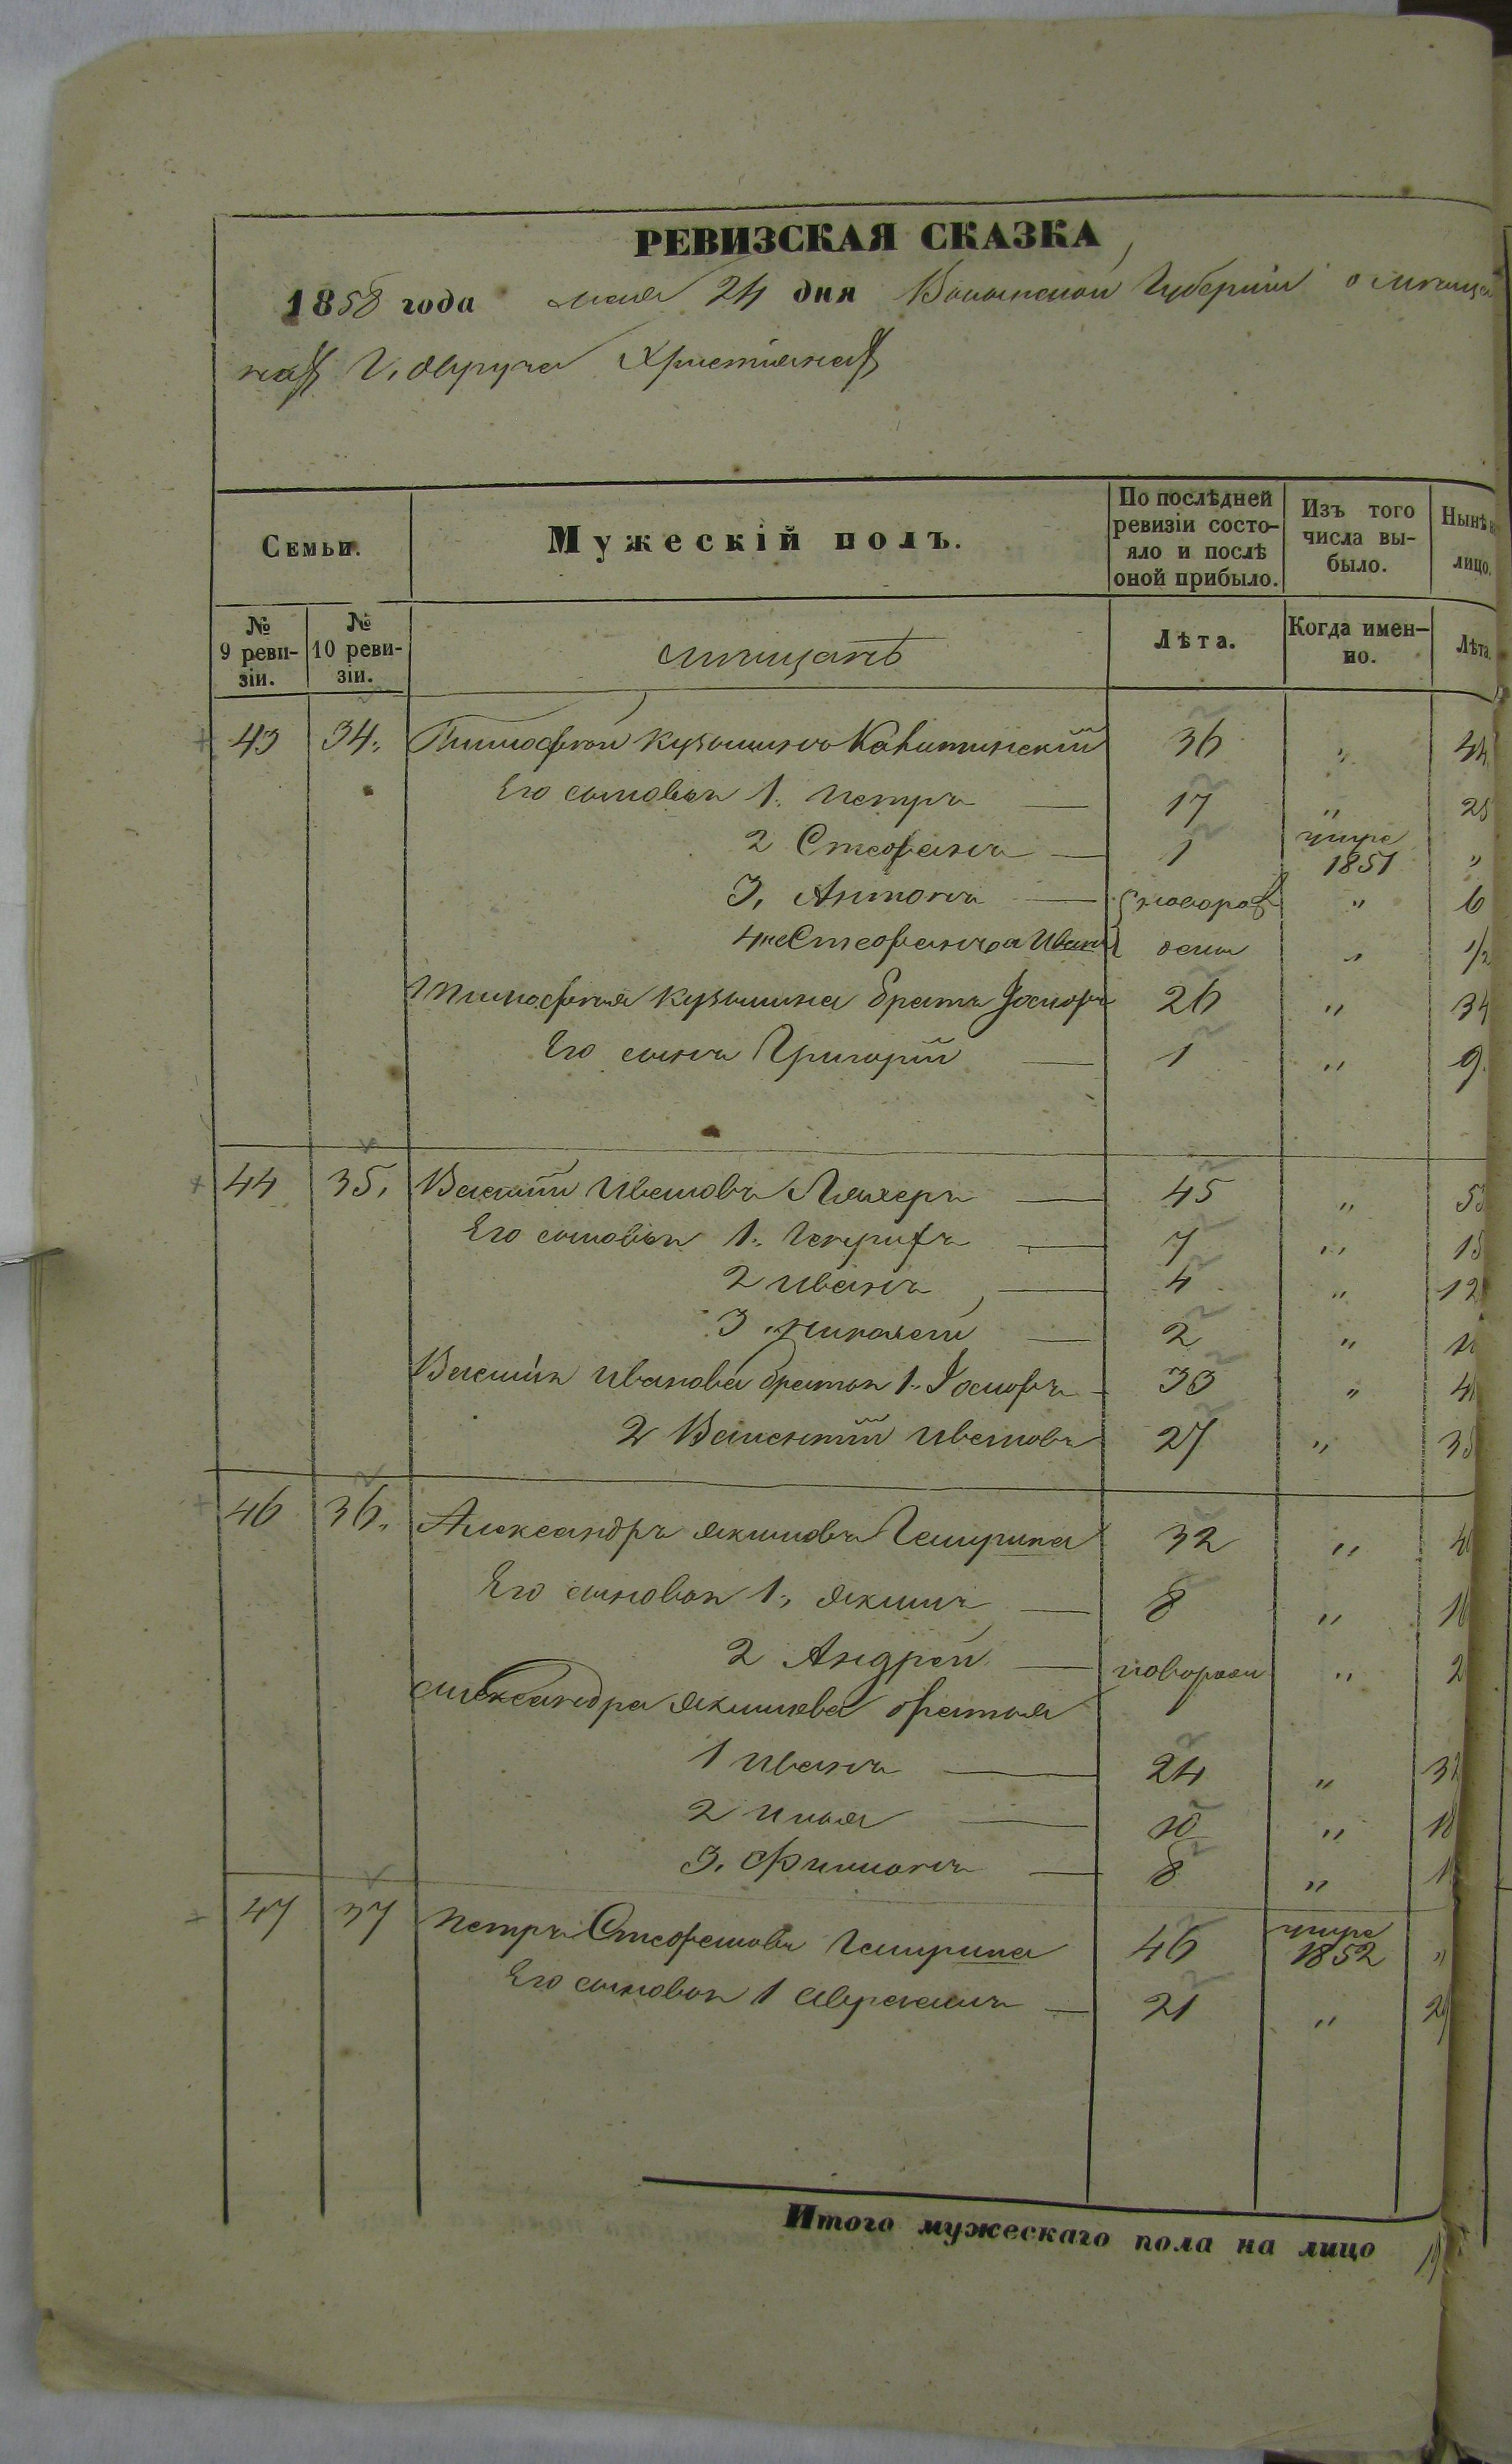 РЕВИЗСКАЯ СКАЗКА
1858 года мая 24 дня Волынской Губерніи о мѣща
нахъ Г. Овруча Христіянахъ
Семьи.
Мужескій полъ.
По послѣдней ревизіи состо-
яло и послѣ оной прибыло.
Изъ того числа вы-
было.
Нынѣ
лицо.
№ 9 реви-
зіи.
№ 10 реви-
зіи.
мѣщанѣ
Лѣта.
Когда имен-
но.
Лѣта.
43 34. Тимофѣй Кузьминъ 36 „ 44
Его сыновья 1. Петръ 17 „ 25
2 Стефанъ 1 умре 1851 „
3. Антонъ новорож „ 6
4 Стефанъ Иванъ дены „ 1/2
Тимофѣя Кузьмина братъ Іосифъ 26 „ 34
Его сынъ Григорій 1 „ 9.
44 35. Василій Ивановъ 45 „ 53
Его сыновья 1. 7 „ 15
2 Иванъ 4 „ 12
3. Николай 2 „
Василія Иванова братья 1. Іосифъ „
2 Валентій Ивановъ 27 „ 35
46 36. Александръ Якимовъ 32 „
Его сыновья 1. Якимъ 8 „
2 Андрей „ 2
Александра Якимова братья
1 Иванъ 24 „ 32
2 Илья 10 „ 18
3. Филимонъ 8 „
47 37 Петръ Стефановъ 46 умре 1852 „
Его сыновья 1 Авраамъ 21 „ 29
Итого мужескаго пола на лицо